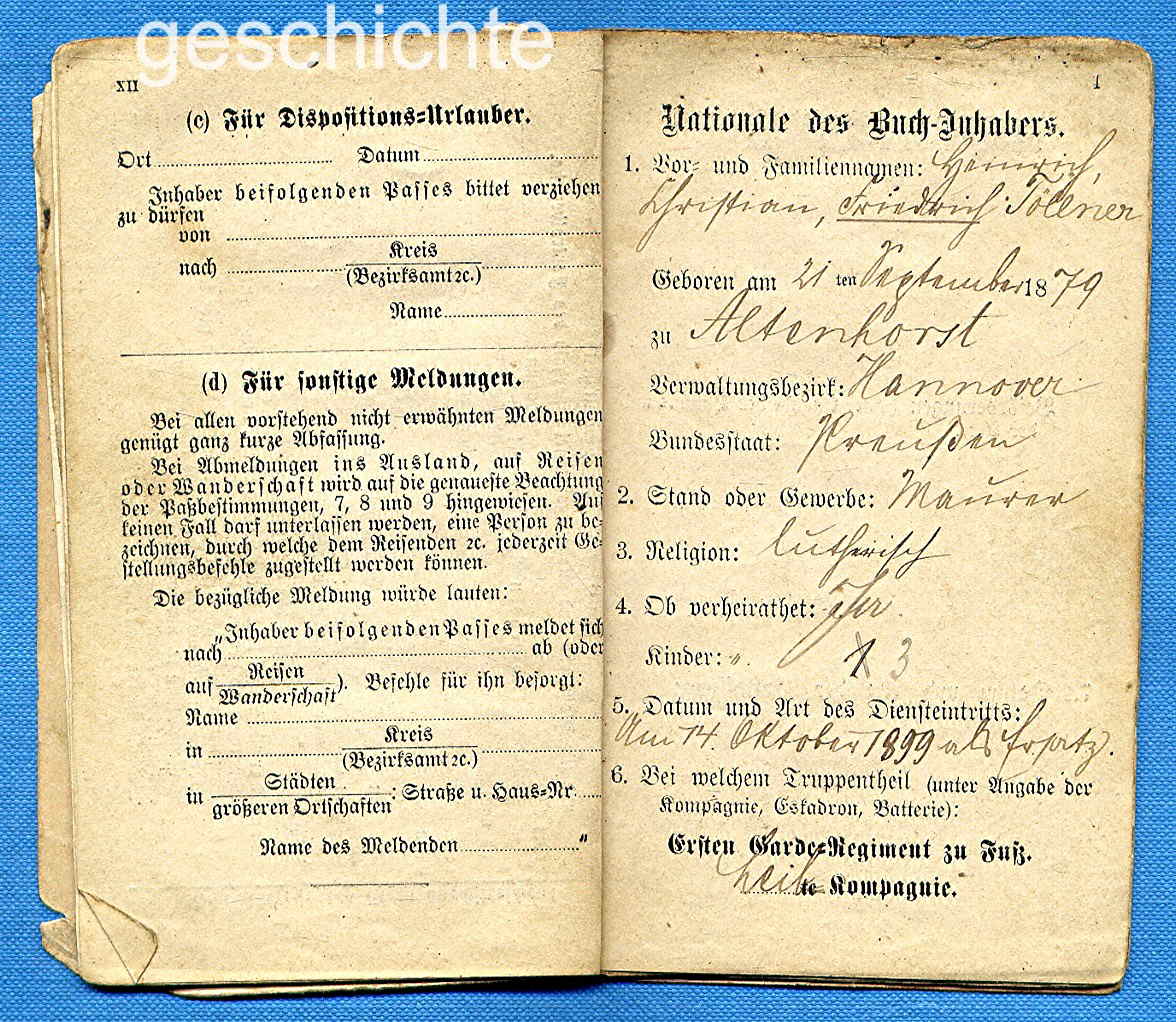 geschichte
XII
(c) Für Dispositions-Urlauber.
Ort Datum
Inhaber beifolgenden Passes bittet verziehen
zu dürfen
von
nach Kreis
(Bezirksamt ꝛc.)
Name
(d) Für sonstige Meldungen.
Bei allen vorstehend nicht erwähnten Meldungen
genügt ganz kurze Abfassung.
Bei Abmeldungen ins Ausland, auf Reisen
oder Wanderschaft wird auf die genaueste Beachtung
der Paßbestimmungen, 7, 8 und 9 hingewiesen. Auf
keinen Fall darf unterlassen werden, eine Person zu be-
zeichnen, durch welche dem Reisenden ꝛc. jederzeit Ge-
stellungsbefehle zugestellt werden können.
Die bezügliche Meldung würde lauten:
„Inhaber beifolgenden Passes meldet sich
nach ab (oder
auf Reisen
Wanderschaft). Befehle für ihn besorgt:
Name
in Kreis
(Bezirksamt ꝛc.)
in Städten
größeren Ortschaften: Straße u. Haus-Nr.
Name des Meldenden "
1
Nationale des Buch-Inhabers.
1. Vor- und Familiennamen: Heinrich,
Christian, Friedrich Töllner
Geboren am 21 ten September 1879
zu Altenhorst
Verwaltungsbezirk: Hannover
Bundesstaat: Preußen
2. Stand oder Gewerbe: Maurer
3. Religion: lutherisch
4. Ob verheirathet:
Kinder: 3
5. Datum und Art des Diensteintritts:
Am 14. Oktober 1899 als Ersatz.
6. Bei welchem Truppentheil (unter Angabe der
Kompagnie, Eskadron, Batterie):
Ersten Garde-Regiment zu Fuß.
Leib te Kompagnie.